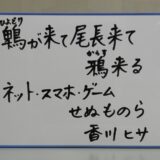 ひよどり
鵯が来て尾長来て
からす
鴉来る
ネット・スマホ・ゲーム
せぬものら
香川ヒサ